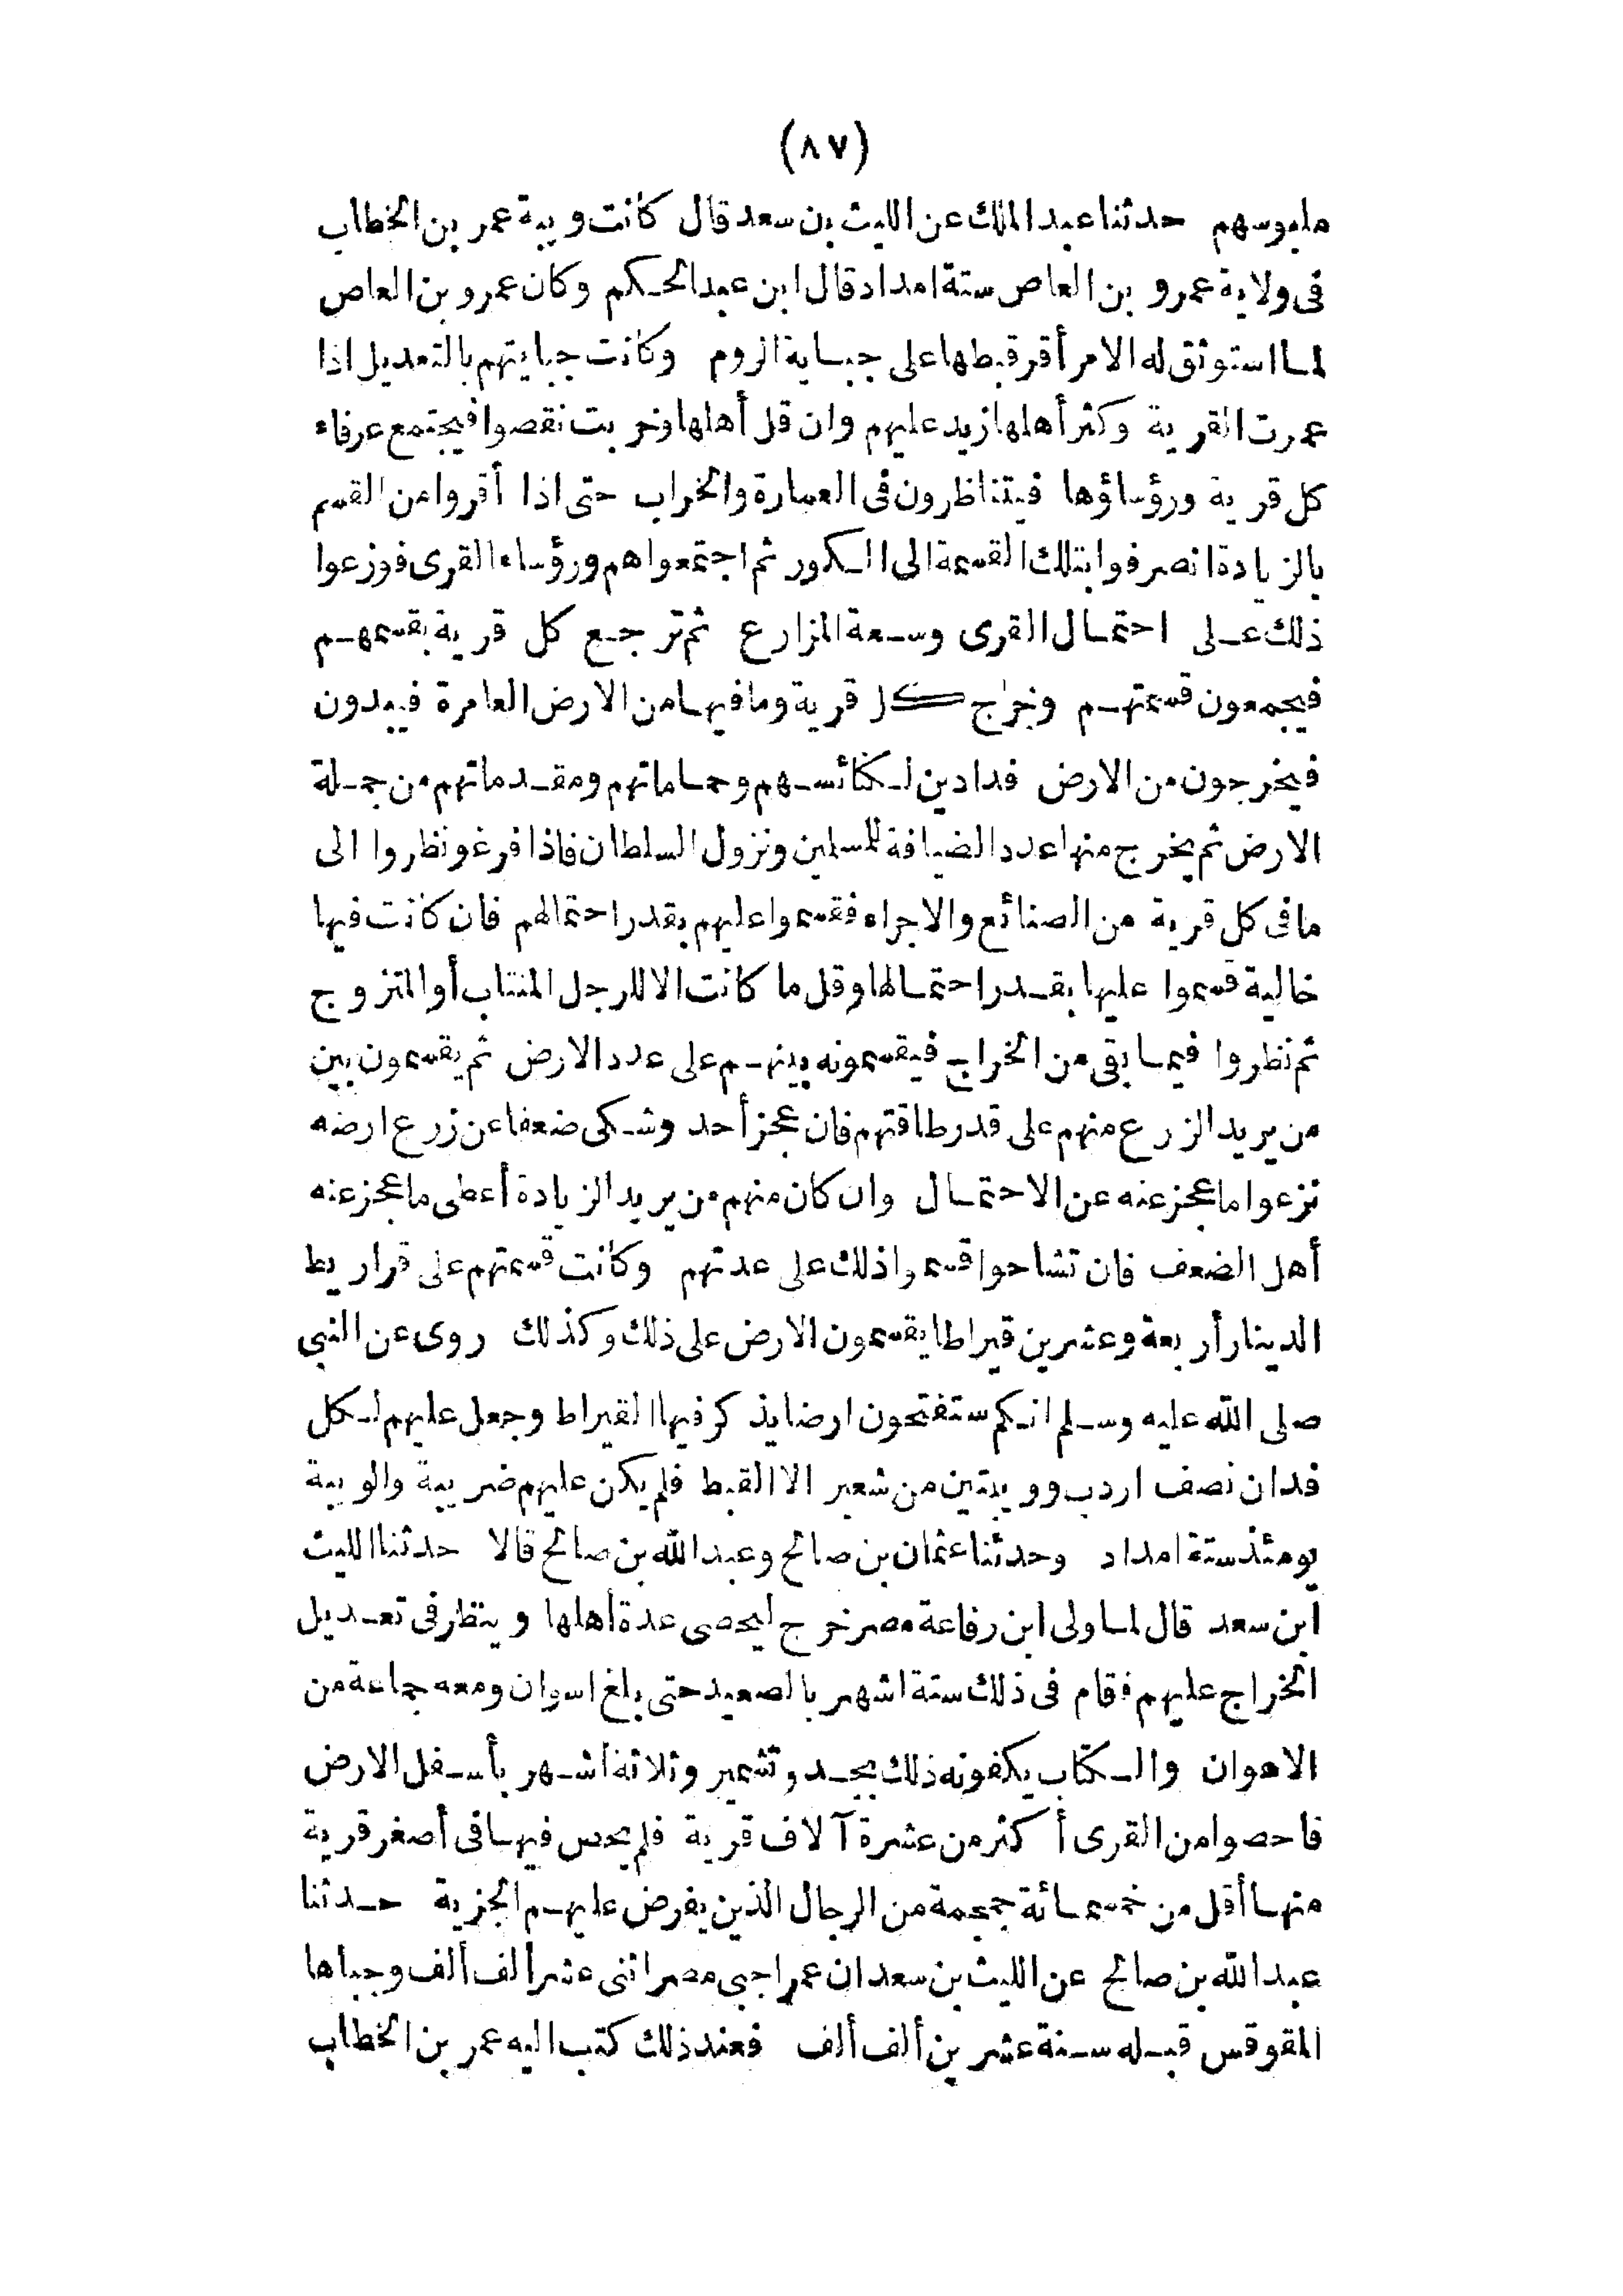 (٨٧)
ملبوسهم حدثنا عبد الملك عن الليث بن سعد قال كانت ويبة عمر بن الخطاب
فى ولاية عمرو بن العاص ستة امداد قال ابن عبد الحكم وكان عمرو بن العاص
لما استوثق له الامر أقر قبطها على جباية الروم وكانت جبايتهم بالتعديل اذا
عمرت القرية وكثر أهلها زيد عليهم وان قل أهلها وخربت نقصوا فيجتمع عرفاء
كل قرية ورؤساؤها فيتناظرون فى العمارة والخراب حتى اذا أقروا من القسم
بالزيادة انصرفوا بتلك القسمة الى الكور ثم اجتمعوا هم ورؤساء القرى فوزعوا
ذلك على احتمال القرى وسعة المزارع ثم ترجع كل قرية بقسمهم
فيجمعون قسمتهم وخراج كل قرية وما فيها من الارض العامرة فيبدون
فيخرجون من الارض فدادين لكنائسهم وحماماتهم ومقدماتهم من جملة
الارض ثم يخرج منها عدد الضيافة للمسلمين ونزول السلطان فاذا فرغوا نظروا الى
ما فى كل قرية من الصنائع والاجراء فقسموا عليهم بقدر احتمالهم فان كانت فيها
خالية قسموا عليها بقدر احتمالها وقل ما كانت الا للرجل المنتاب أو المتزوج
ثم نظروا فيما بقى من الخراج فيقسمونه بينهم على عدد الارض ثم يقسمون بين
من يريد الزرع منهم على قدر طاقتهم فان عجز أحد وشكى ضعفا عن زرع ارضه
نزعوا ما عجز عنه عن الاحتمال وان كان منهم من يريد الزيادة أعطى ما عجز عنه
أهل الضعف فان تشاحوا قسموا ذلك على عدتهم وكانت قسمتهم على قراريط
الدينار أربعة وعشرين قيراطا يقسمون الارض على ذلك وكذلك روى عن النبى
صلى الله عليه وسلم انكم ستفتحون ارضا يذكر فيها القيراط وجعل عليهم لكل
فدان نصف اردب وويبتين من شعير الا القبط فلم يكن عليهم ضريبة والويبة
يومئذ ستة امداد وحدثنا عثمان بن صالح وعبد الله بن صالح قالا حدثنا الليث
ابن سعد قال لما ولى ابن رفاعة مصر خرج ليحصى عدة أهلها وينظر فى تعديل
الخراج عليهم فقام فى ذلك ستة اشهر بالصعيد حتى بلغ اسوان ومعه جماعة من
الاعوان والكتاب يكفونه ذلك بجد وتشمير وثلاثة أشهر بأسفل الارض
فاحصوا من القرى أكثر من عشرة آلاف قرية فلم يحص فيها فى أصغر قرية
منها أقل من خمسمائة جمجمة من الرجال الذين يفرض عليهم الجزية حدثنا
عبد الله بن صالح عن الليث بن سعد ان عمرا جبى مصر اثنى عشر ألف ألف وجباها
المقوقس قبله سنة عشرين ألف ألف فعند ذلك كتب اليه عمر بن الخطاب